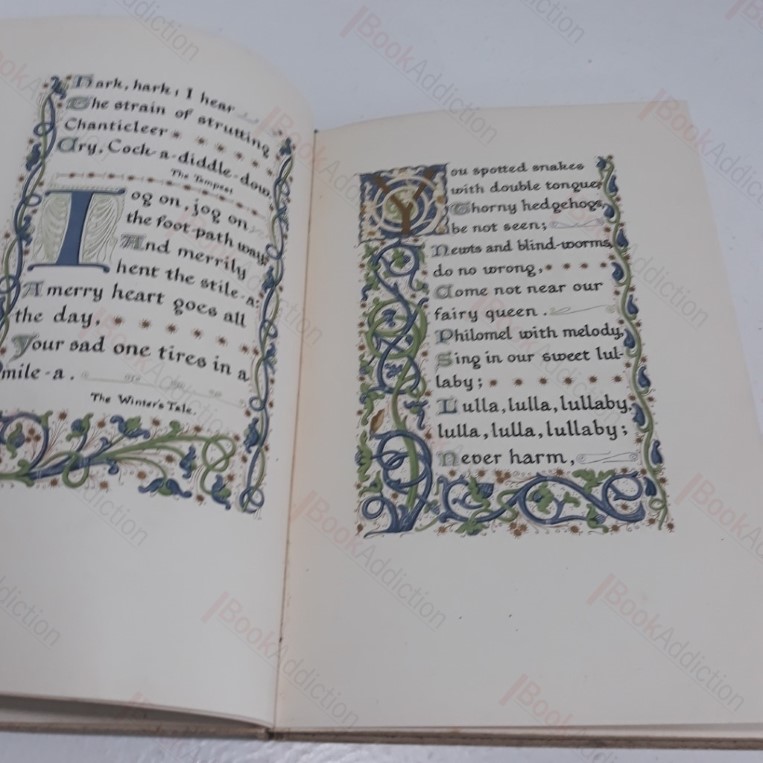 Hark, hark! I hear
The strain of strutting
Chanticleer
Cry, Cock-a-diddle-dow
The Tempest
Jog on, jog on,
the foot-path way,
And merrily
hent the stile-a:
A merry heart goes all
the day,
Your sad one tires in a
mile-a.
The Winter's Tale.
You spotted snakes
with double tongue,
Thorny hedgehogs,
be not seen;
Newts and blind-worms,
do no wrong,
Come not near our
fairy queen.
Philomel with melody,
Sing in our sweet lul-
laby;
Lulla, lulla, lullaby,
lulla, lulla, lullaby;
Never harm,
BookAddiction